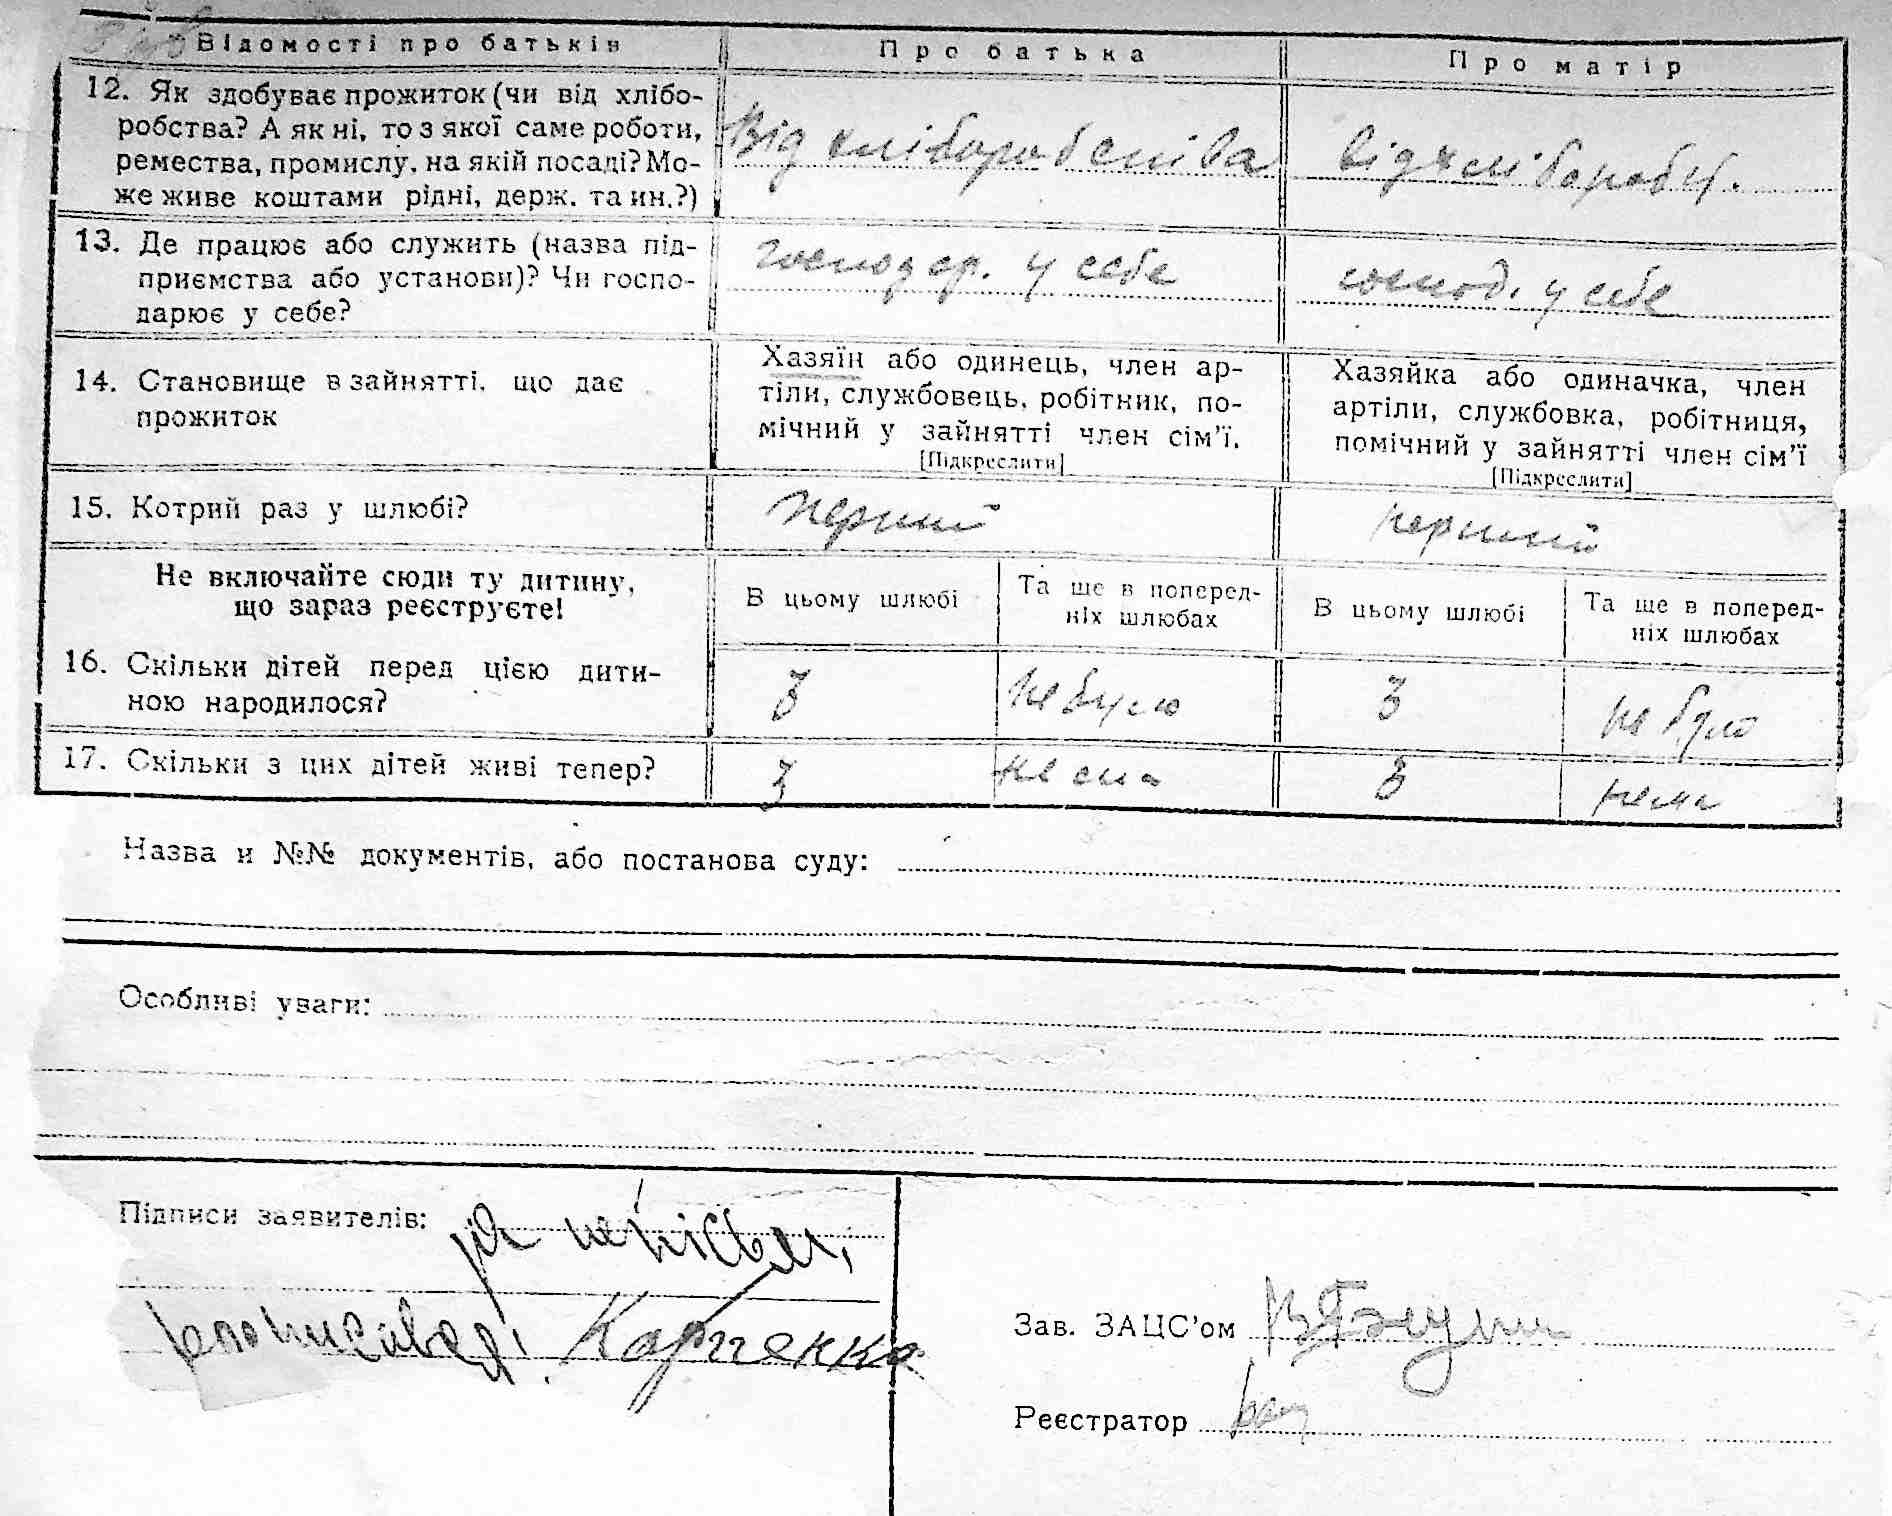 Відомості про батьків
Про батька
Про матір
12. Як здобуває прожиток (чи від хлібо-
робства? А як ні, то з якої саме роботи,
ремества, промислу, на якій посаді? Мо-
же живе коштами рідні, держ. та ин.?)
Від хліборобства
від хлібороб.
13. Де працює або служить (назва під-
приємства або установи)? Чи госпо-
дарює у себе?
господар. у себе
господ. у себе
14. Становище в зайнятті, що дає
прожиток
Хазяїн або одинець, член ар-
тіли, службовець, робітник, по-
мічний у зайнятті член сім'ї.
[Підкреслити]
Хазяйка або одиначка, член
артіли, службовка, робітниця,
помічний у зайнятті член сім'ї
[Підкреслити]
15. Котрий раз у шлюбі?
перший
перший
Не включайте сюди ту дитину,
що зараз реєструєте!
В цьому шлюбі
Та ще в поперед-
ніх шлюбах
В цьому шлюбі
Та ще в поперед-
ніх шлюбах
16. Скільки дітей перед цією дити-
ною народилося?
3
не було
3
не було
17. Скільки з цих дітей живі тепер?
3
нема
3
нема
Назва и №№ документів, або постанова суду:
Особливі уваги:
Підписи заявителів: за непісьм.
росписався! Карпенко
Зав. ЗАЦС'ом
Реєстратор